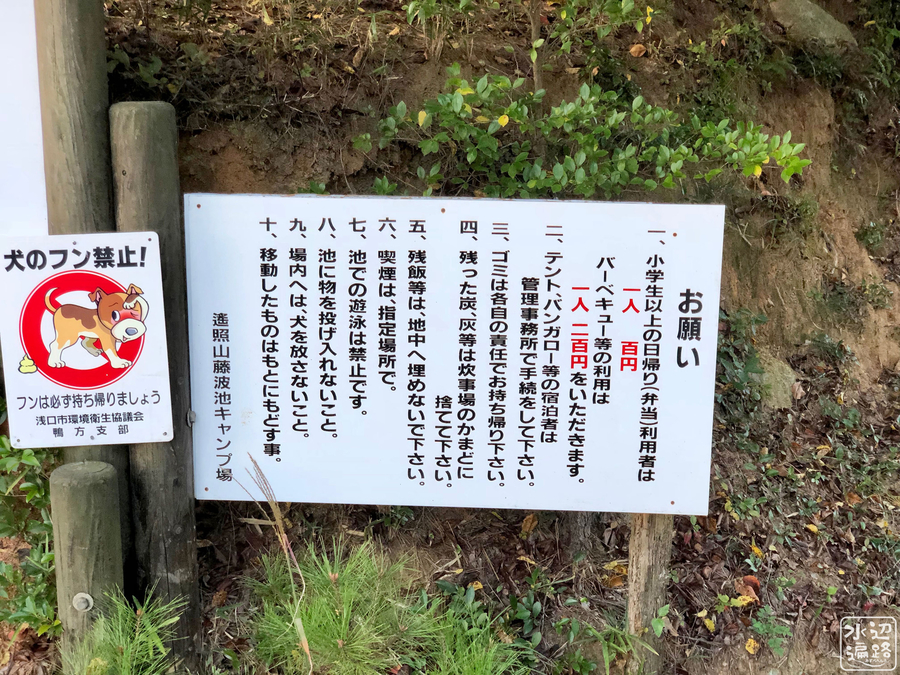 犬のフン禁止!
フンは必ず持ち帰りましょう
浅口市環境衛生協議会
鴨方支部
お願い
一、小学生以上の日帰り(弁当)利用者は
一人 百円
バーベキュー等の利用は
一人 二百円をいただきます。
二、テント、バンガロー等の宿泊者は
管理事務所で手続をして下さい。
三、ゴミは各自の責任でお持ち帰り下さい。
四、残った炭、灰等は炊事場のかまどに
捨てて下さい。
五、残飯等は、地中へ埋めないで下さい。
六、喫煙は、指定場所で。
七、池での遊泳は禁止です。
八、池に物を投げ入れないこと。
九、場内へは、犬を放さないこと。
十、移動したものはもとにもどす事。
遙照山藤波池キャンプ場
水辺遍路